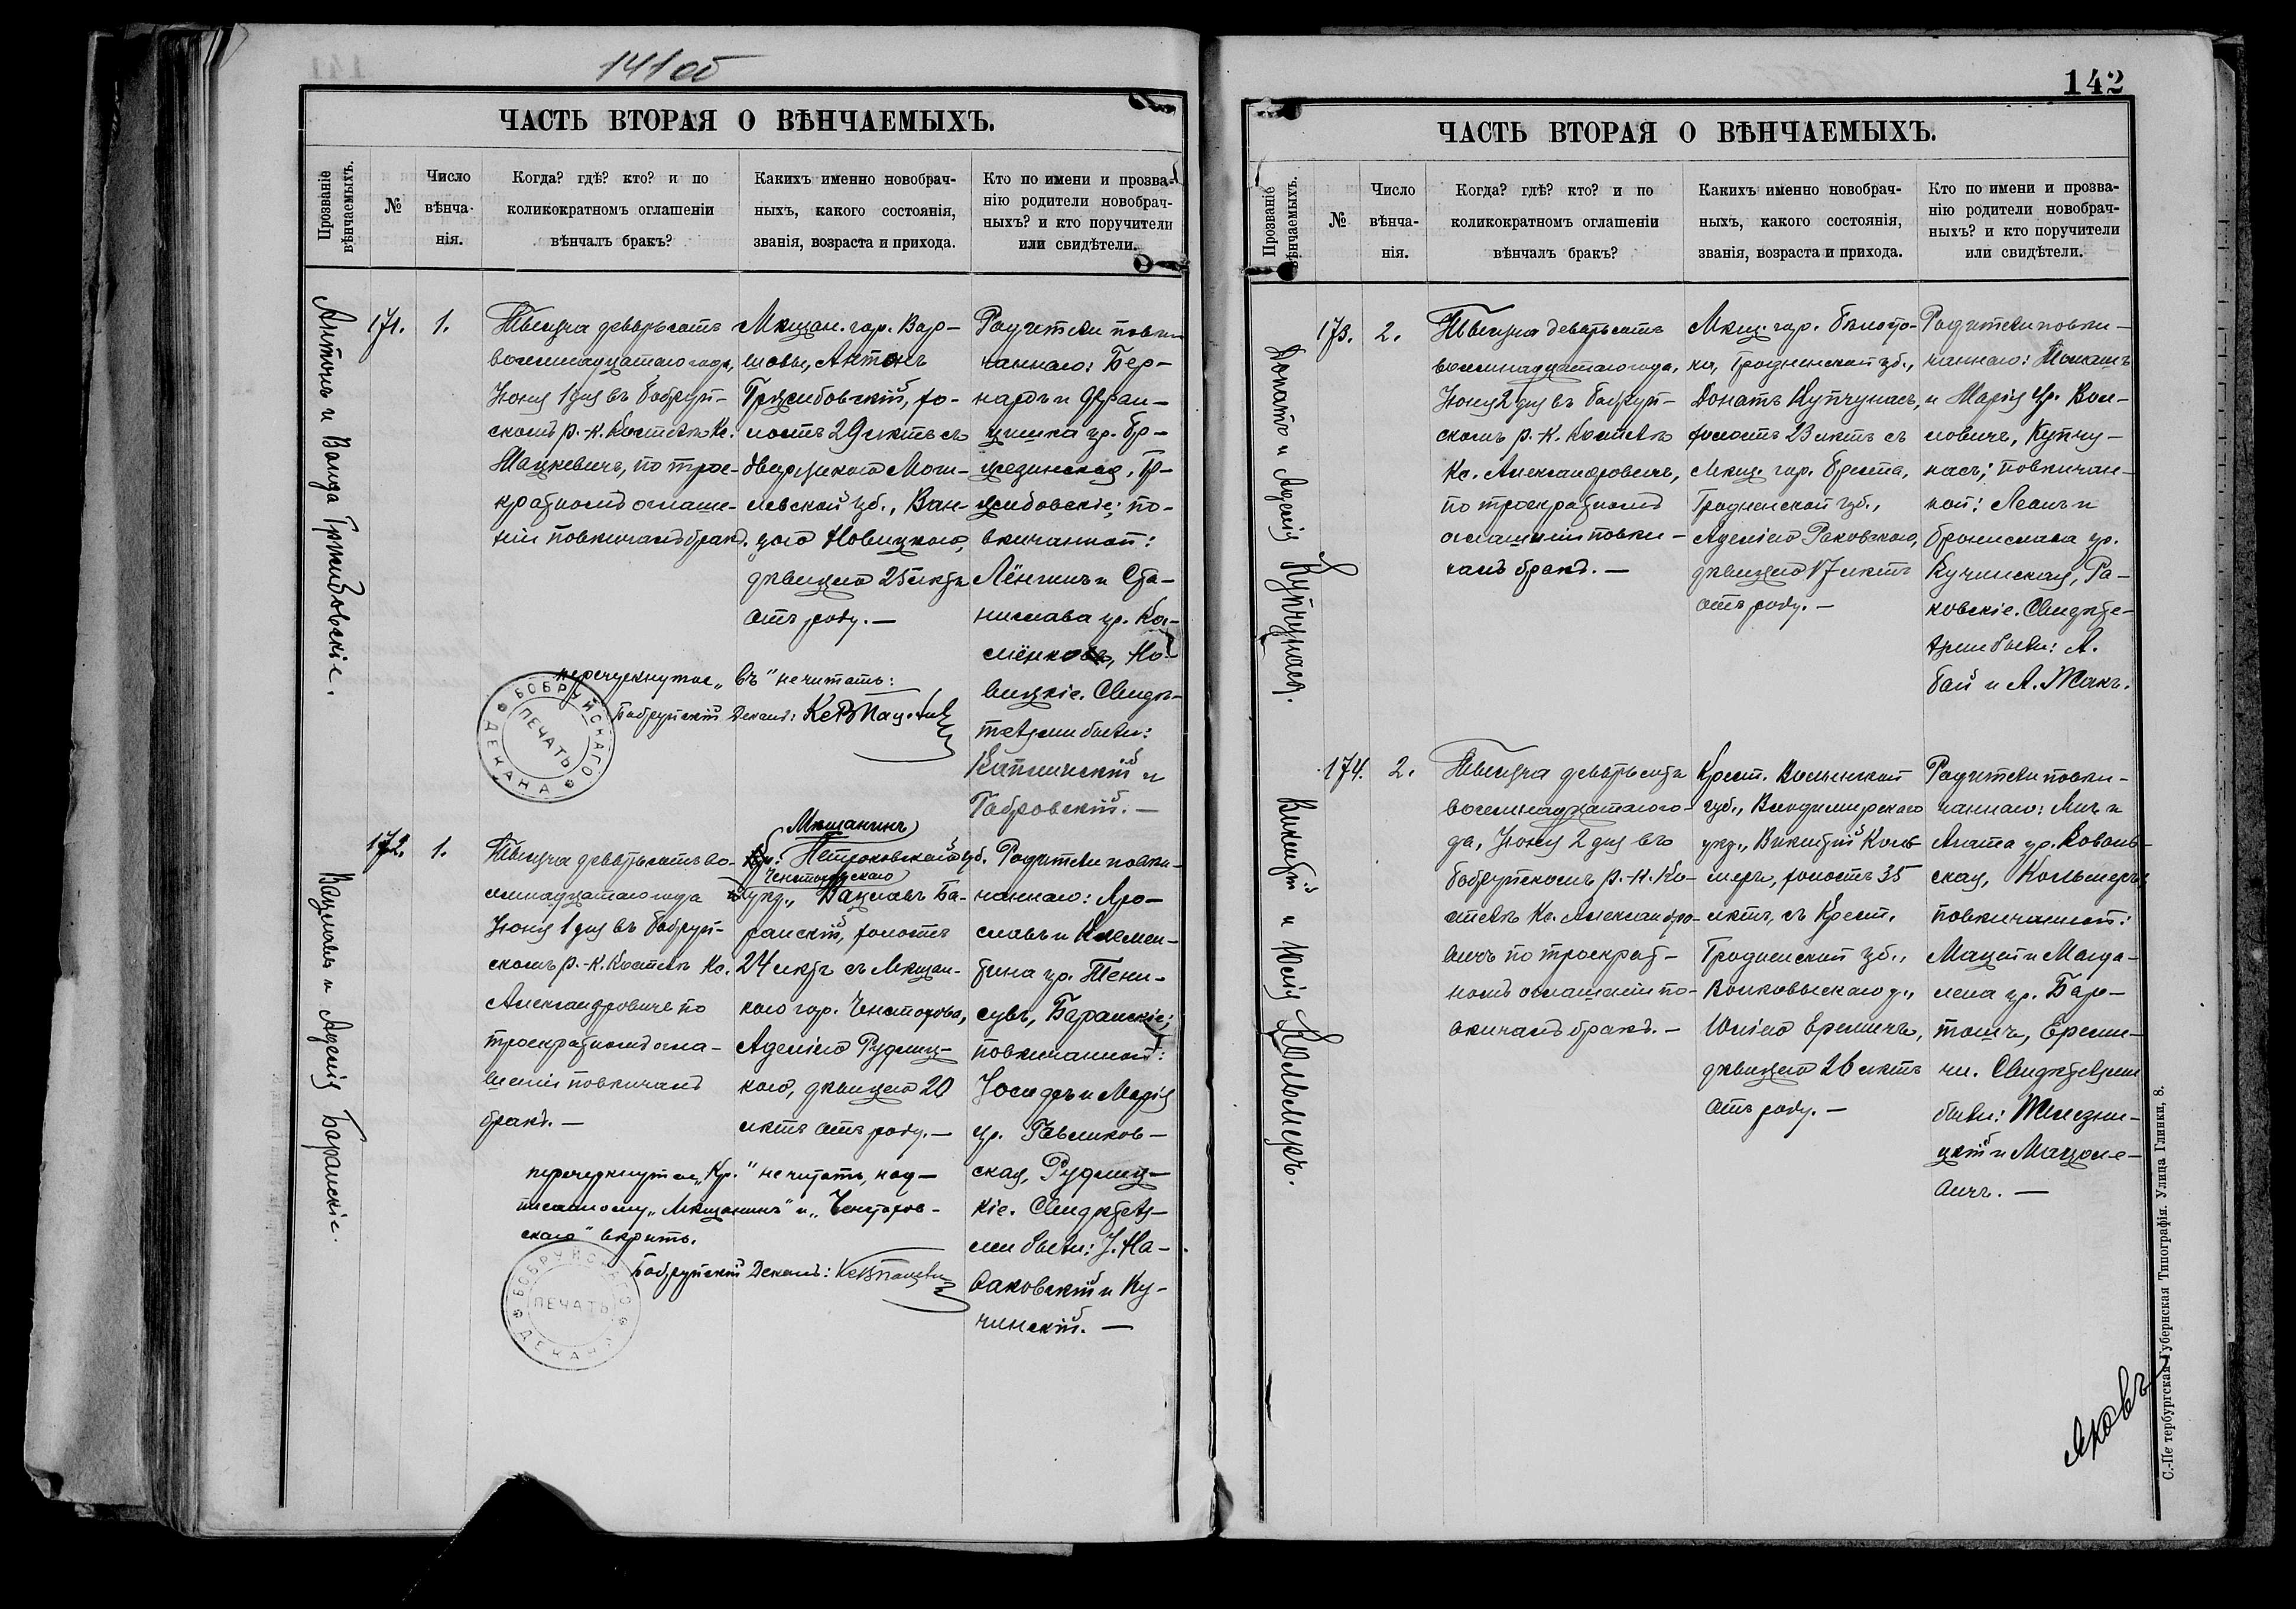 141 об
ЧАСТЬ ВТОРАЯ О ВѢНЧАЕМЫХЪ.
Прозваніе
вѣнчаемыхъ.
№
Число
вѣнча-
нія.
Когда? гдѣ? кто? и по
коликократномъ оглашеніи
вѣнчалъ бракъ?
Какихъ именно новобрач-
ныхъ, какого состоянія,
званія, возраста и прихода.
Кто по имени и прозва-
нію родители новобрач-
ныхъ? и кто поручители
или свидѣтели.
Антонъ и Ванда Гржибовскіе.
171.
1.
Тысяча девятьсотъ
восемнадцатаго года,
Іюня 1 дня въ Бобруй-
скомъ р.-к. Костелѣ Кс.
Мацкевичъ, по трое-
кратномъ оглаше-
ніи повѣнчалъ бракъ.
Мѣщан. гор. Вар-
шавы, Антонъ
Гржибовскій, хо-
лостъ 29 лѣтъ съ
двор
Моги-
левской губ., Ван-
дою Новицкою,
дѣвицею 25 лѣтъ
отъ роду. —
Родители повѣн-
чаннаго: Бер-
нардъ и Фран-
цишка ур. Бр-
жезинская, Гр-
жибовскіе; по-
вѣнчанной:
Лёнгинъ и Ста-
нислава ур. Ка-
лёнково, Но-
вицкіе. Свидѣ-
телями были:
Капличскій и
Габровскій. —
перечеркнутое „въ" не читать:
Бобруйскій Деканъ:
БОБРУЙСКАГО ДЕКАНА
ПЕЧАТЬ
Вацлавъ и Аделія Баранскіе.
172.
1.
Тысяча девятьсотъ во-
семнадцатаго года
Іюня 1 дня въ Бобруй-
скомъ р.-к. Костелѣ Кс.
Александровичъ по
троекратномъ огла-
шеніи повѣнчалъ
бракъ. —
Мѣщанинъ
Кр. Петроковской губ.
Ченстоховскаго
уѣзд., Вацлавъ Ба-
ранскій, холостъ
24 лѣтъ съ мѣщан-
кою гор. Ченстохова,
Аделіею Рудниц-
кою, дѣвицею 20
лѣтъ отъ роду. —
Родители повѣн-
чаннаго: Яро-
славъ и Клемен-
тина ур.
Баранскіе;
повѣнчанной:
Іосифъ и Марія
ур. Гавликов-
ская, Рудниц-
кіе. Свидѣтеля-
ми были: І. На-
ваковскій и Ку-
чинскій. —
перечеркнутое „Кр." не читать, над-
писанному „Мѣщанинъ" и „Ченстохов-
скаго" вѣрить.
Бобруйскій Деканъ:
БОБРУЙСКАГО ДЕКАНА
ПЕЧАТЬ
142
ЧАСТЬ ВТОРАЯ О ВѢНЧАЕМЫХЪ.
Прозваніе
вѣнчаемыхъ.
№
Число
вѣнча-
нія.
Когда? гдѣ? кто? и по
коликократномъ оглашеніи
вѣнчалъ бракъ?
Какихъ именно новобрач-
ныхъ, какого состоянія,
званія, возраста и прихода.
Кто по имени и прозва-
нію родители новобрач-
ныхъ? и кто поручители
или свидѣтели.
Донатъ и Аделія Купчунася.
173.
2.
Тысяча девятьсотъ
восемнадцатаго года,
Іюня 2 дня въ Бобруй-
скомъ р.-К. Костелѣ
Кс. Александровичъ,
по троекратномъ
оглашеніи повѣн-
чалъ бракъ. —
Мѣщ. гор. Бѣлосто-
ка, Гродненской губ.,
Донатъ Купчунасъ,
холостъ 23 лѣтъ съ
мѣщ. гор. Бреста,
Гродненской губ.,
Аделіею Раковскою,
дѣвицею 17 лѣтъ
отъ роду. —
Родители повѣн-
чаннаго:
и Марія ур. Вой-
новичъ, Купчу-
насъ; повѣнчан-
ной: Леонъ и
Бронислава ур.
Кучинская, Ра-
ковскіе. Свидѣте-
лями были: А.
Бай и А. Жакъ.
Викентій и Юлія Кольмеръ.
174.
2.
Тысяча девятьсотъ
восемнадцатаго го-
да, Іюня 2 дня въ
Бобруйскомъ р.-К. Ко-
стелѣ Кс. Александро-
вичъ по троекрат-
номъ оглашеніи по-
вѣнчалъ бракъ. —
Крест. Волынской
губ., Владимирскаго
уѣзд., Викентій Коль-
меръ, холостъ 35
лѣтъ, съ Крест.
Гродненской губ.,
Волковыскаго у.,
Юліею Еремичъ,
дѣвицею 26 лѣтъ
отъ роду. —
Родители повѣн-
чаннаго: Янъ и
Агата ур. Коваль-
ская, Кольмеръ;
повѣнчанной:
Мацей и Магда-
лена ур. Бар-
тошъ, Ереми-
чи. Свидѣтелями
были: Желѣзни-
цкій и Мацюле-
вичъ. —
Яковъ
С.-Петербургская Губернская Типографія. Улица Глинки, 8.